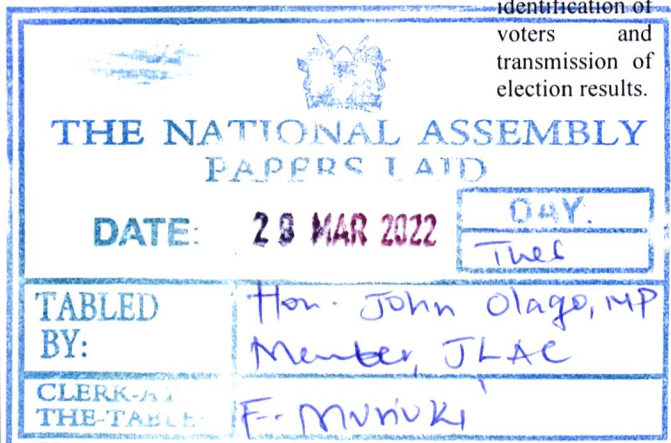 identification of
voters and
transmission of
election results.
THE NATIONAL ASSEMBLY
PAPERS LAID
DATE: 29 MAR 2022
DAY.
Tues
TABLED BY:
Hon. John Olago, MP
Member, JLAC
CLERK-AT
THE-TABLE:
F. Muriuki